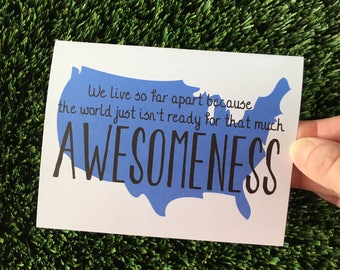 We live so far apart because
the world just isn't ready for that much
AWESOMENESS